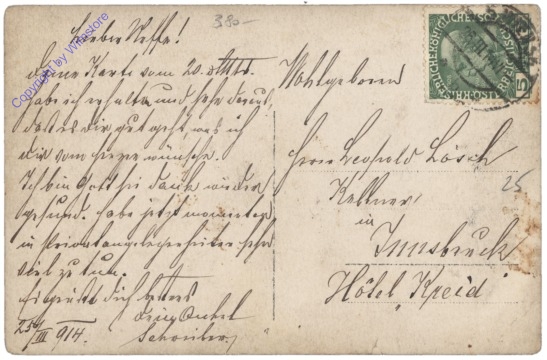 380–
Lieber Neffe!
Deine Karte vom 20. d. Mts.
habe ich erhalten und sehe daraus,
daß es dir gut geht, was ich
dir vom Herzen wünsche.
Ich bin Gott sei Dank wieder
gesund. Habe jetzt momentan
in Privatangelegenheiten sehr
viel zu tun.
Es grüßt dich bestens
dein Onkel
Schreiber
25/III 914.
Wohlgeboren
Herrn Leopold Lösch
Kellner
in
Innsbruck
Hôtel „Kreid"
25
KAISERLICHE KÖNIGLICHE ÖSTERREICHISCHE POST
5
Copyright by Wildstore